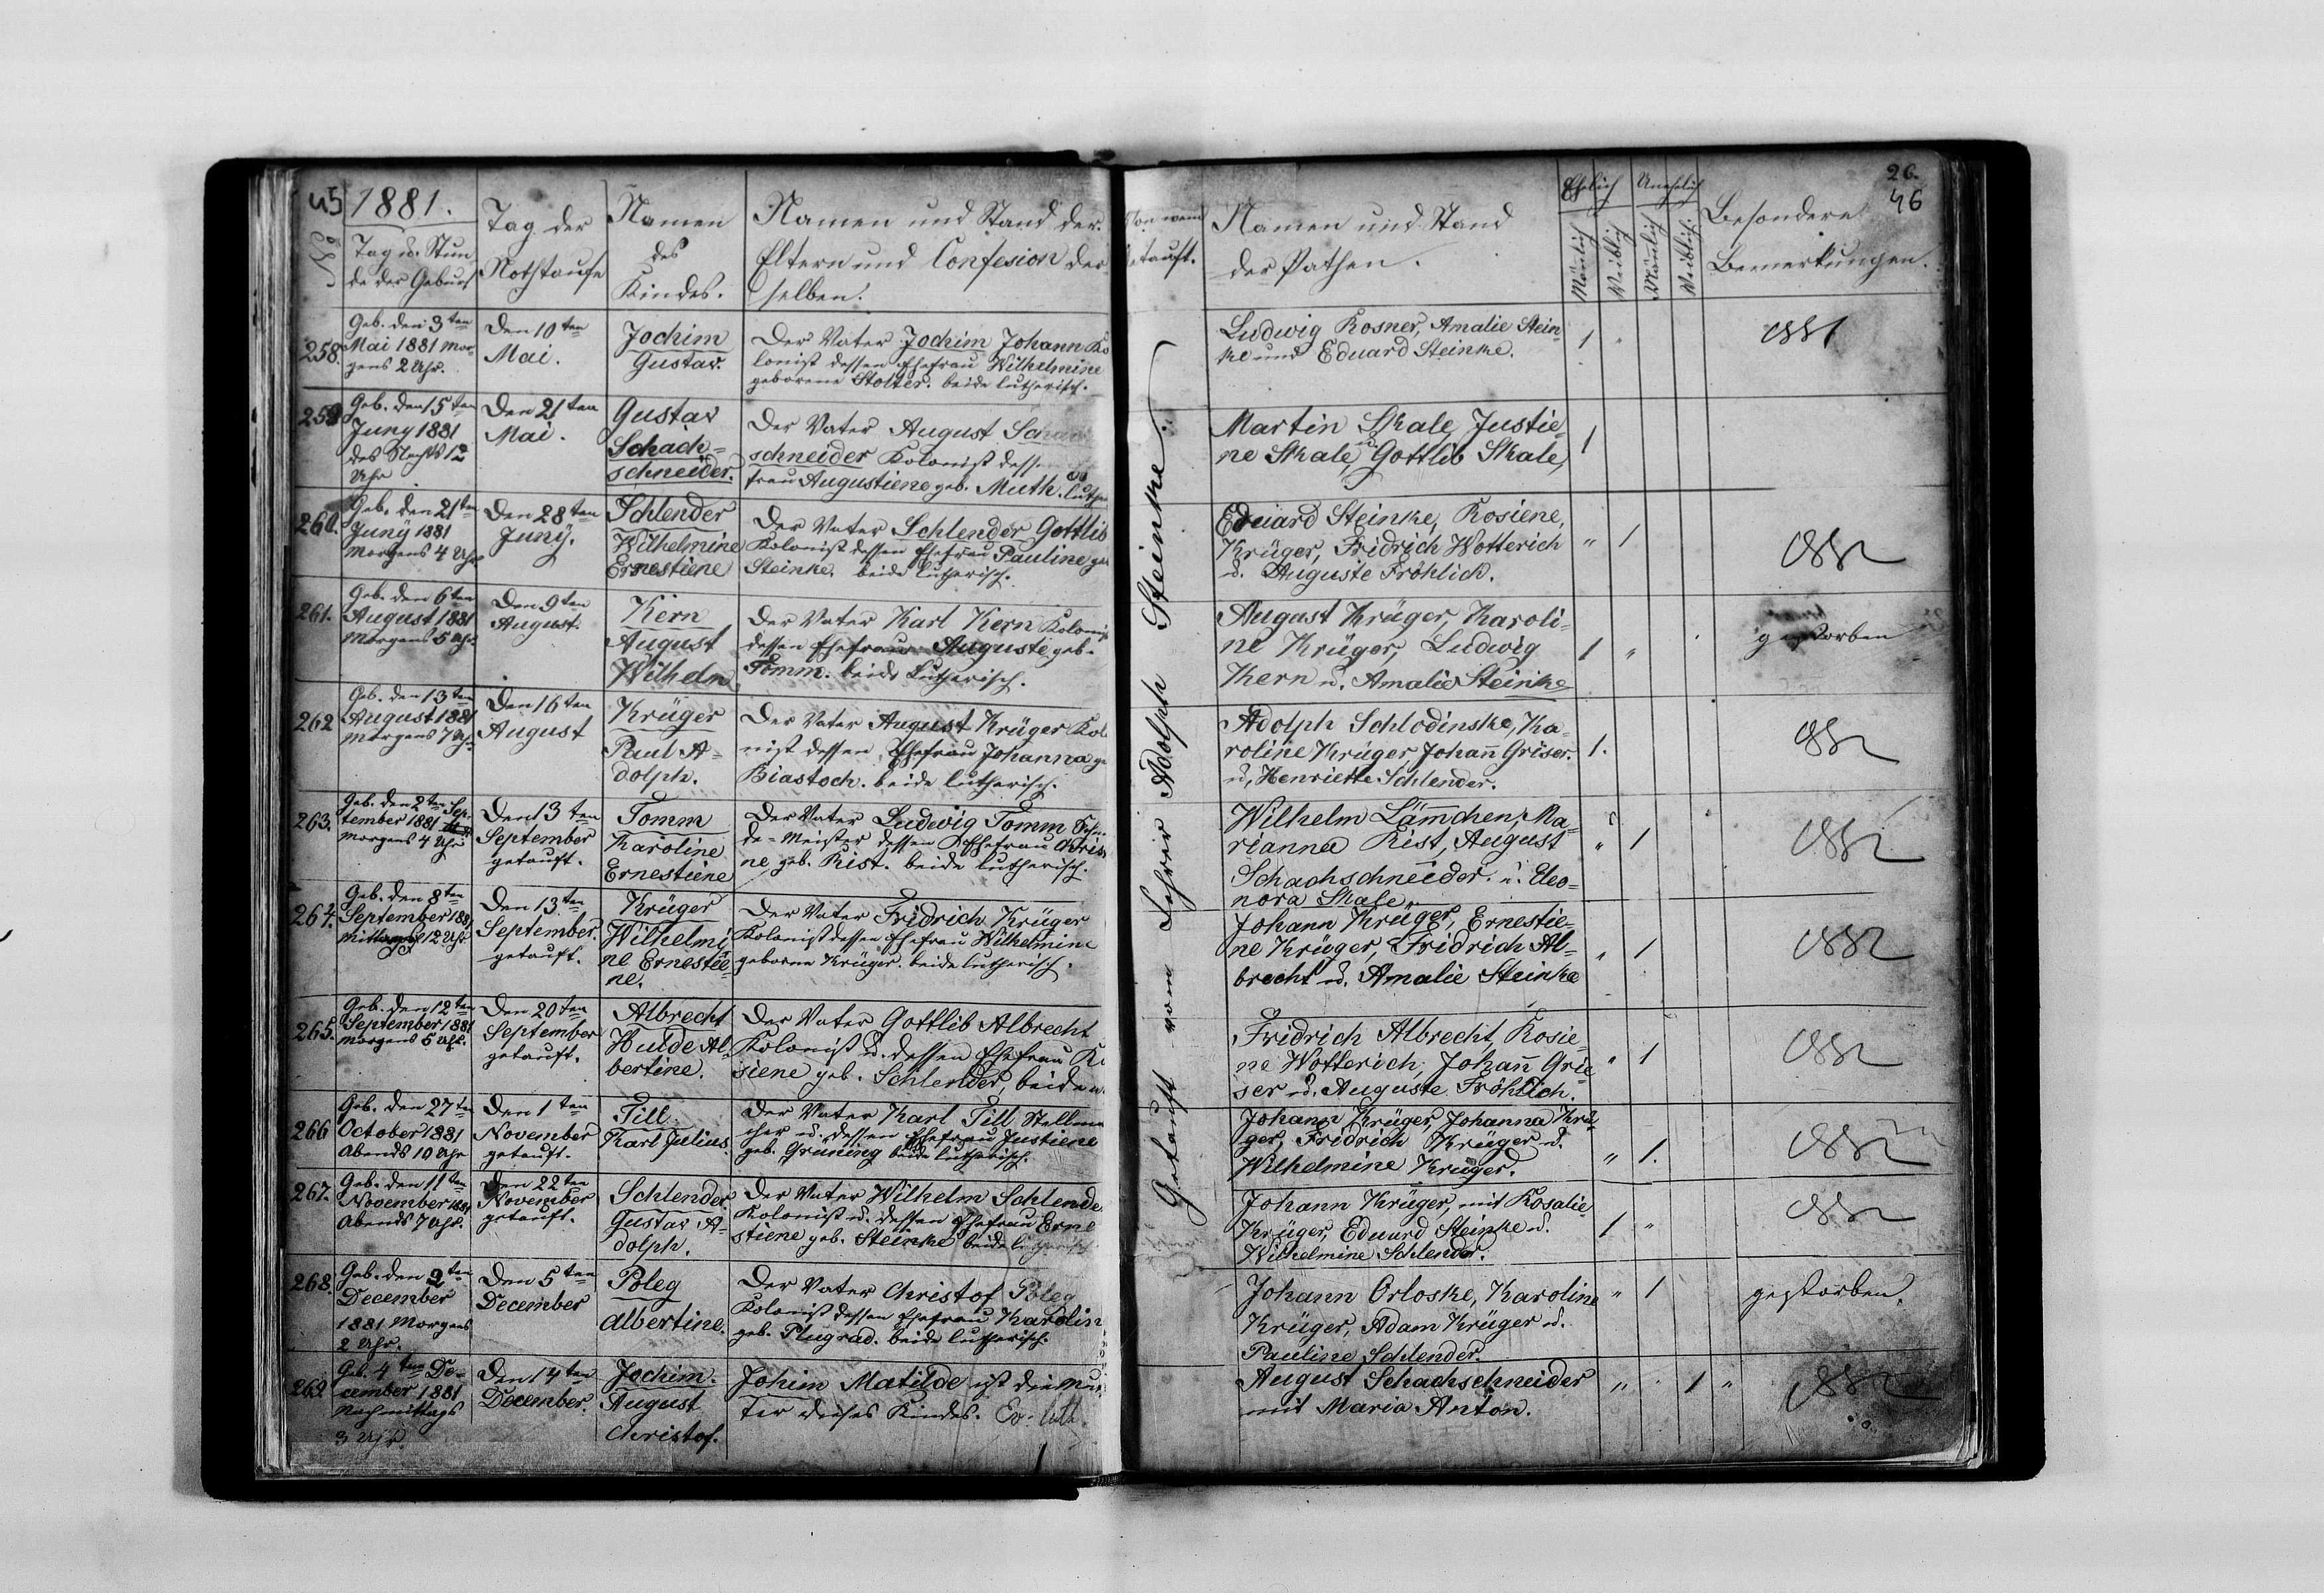 45
1881.
Nº
Tag u. Stun-
de der Geburt
Tag der
Nothtaufe
Namen
des
Kindes.
Namen und Stand der
Eltern und Confesion der-
selben.
258.
Geb. den 3ten
Mai 1881 mor-
gens 2 Uhr.
Den 10ten
Mai.
Jochim
Gustav.
Der Vater Jochim Johann Ko
lonist dessen Ehefrau Wilhelmine
geborene Stolter. beide lutherisch.
259
Geb. den 15ten
Juny 1881
des Nachts 12
Uhr
Den 21ten
Mai.
Gustav
Schach-
schneider.
Der Vater August Schach
schneider Kolonist dessen Eh
frau Augustiene geb. Muth. luthe
260.
Geb. den 21ten
Juny 1881
morgens 4 Uhr
Den 28ten
Juny.
Schlender
Wilhelmine
Ernestiene
Der Vater Schlender Gottlib
Kolonist dessen Ehefrau Pauline ge
Steinke. beide lutherisch.
261.
Geb. den 6ten
August 1881
morgens 5 Uhr
Den 9ten
August.
Kern
August
Wilhelm
Der Vater Karl Kern Kolonist
dessen Ehefrau Auguste geb.
Tomm. beide lutherisch.
262
Geb. den 13ten
August 1881
morgens 7 Uhr
Den 16ten
August
Krüger
Paul A-
dolph.
Der Vater August Krüger Kol
nist dessen Ehefrau Johanna ge
Biastoch. beide lutherisch.
263.
Geb. den 2ten Sep-
tember 1881
morgens 4 Uhr
Den 13ten
September
getauft.
Tomm
Karoline
Ernestiene
Der Vater Ludwig Tomm
de-Meister dessen Ehefrau Christ
ne geb. Rist. beide lutherisch.
264.
Geb. den 8ten
September 1881
Mittags 12 Uhr
Den 13ten
September.
getauft.
Krüger
Wilhelmi
ne Ernestie-
ne.
Der Vater Fridrich Krüger
Kolonist dessen Ehefrau Wilhelmine
geborne Krüger. beide lutherisch.
265.
Geb. den 12ten
September 1881
morgens 5 Uhr.
Den 20ten
September
getauft.
Albrecht
Hulde Al-
bertine.
Der Vater Gottlib Albrecht
Kolonist u. dessen Ehefrau Ro
siene geb. Schlender, beide
266
Geb. den 27ten
October 1881
Abends 10 Uhr
Den 1ten
November
getauft.
Till.
Karl Julius.
Der Vater Karl Till Stellma
cher u. dessen Ehefrau Justiene
geb. Grüning beide lutherisch.
267.
Geb. den 11ten
November 1881
Abends 7 Uhr.
Den 22ten
November
getauft.
Schlender.
Gustav A-
dolph.
Der Vater Wilhelm Schlende
Kolonist u. dessen Ehefrau Erne
stiene geb. Steinke beide lutherisch
268.
Geb. den 2ten
December
1881 Morgens
2 Uhr.
Den 5ten
December
Poleg
Albertine.
Der Vater Christof Poleg
Kolonist dessen Ehefrau Karolin
geb. Plugrad. beide lutherisch.
269
Geb. 4ten De-
cember 1881
Nachmittags
3 Uhr.
Den 14ten
December.
Jochim.
August
Christof.
Johim Matilde ist die Mut
ter dieses Kindes. Ev. luth.
26.
46
Von wem
getauft.
Namen und Stand
der Pathen.
Ehelich
Unehelich
Mänlich
Weiblich
Mänlich
Weiblich
Besondere
Bemerkungen.
Getauft vom Lehrer Adolph Steinke.
Ludwig Rosner, Amalie Stein-
ke und Eduard Steinke.
1 "
1881
Martin Skale, Justie-
ne Skale, u. Gottlib Skale,
1
Eduard Steinke, Rosiene,
Krüger, Fridrich Wotterich
u. Auguste Fröhlich.
" 1
1882
August Krüger, Karoli-
ne Krüger, Ludwig
Kern u. Amalie Steinke
1 "
gestorben
Adolph Schlodinske, Ka-
roline Krüger, Johann Griser.
u. Henriette Schlender.
1.
1882
Wilhelm Lämchen, Ma-
rianna Rist, August
Schachschneider. u. Eleo-
nora Skale.
" 1
1882
Johann Krüger, Ernestie-
ne Krüger, Fridrich Al-
brecht u. Amalie Steinke
" 1
1882
Fridrich Albrecht, Rosie-
ne Wotterich, Johann Grie-
ser u. Auguste Fröhlich.
" 1
1882
Johann Krüger, Johanna Krü-
ger, Fridrich Krüger u.
Wilhelmine Krüger.
" 1.
1882
Johann Krüger, mit Rosalie
Krüger, Eduard Steinke u.
Wilhelmine Schlender.
1 "
1882
Johann Orloske, Karoline
Krüger, Adam Krüger u.
Pauline Schlender.
" 1
gestorben.
August Schachschneider
mit Maria Anton.
" 1 "
1882